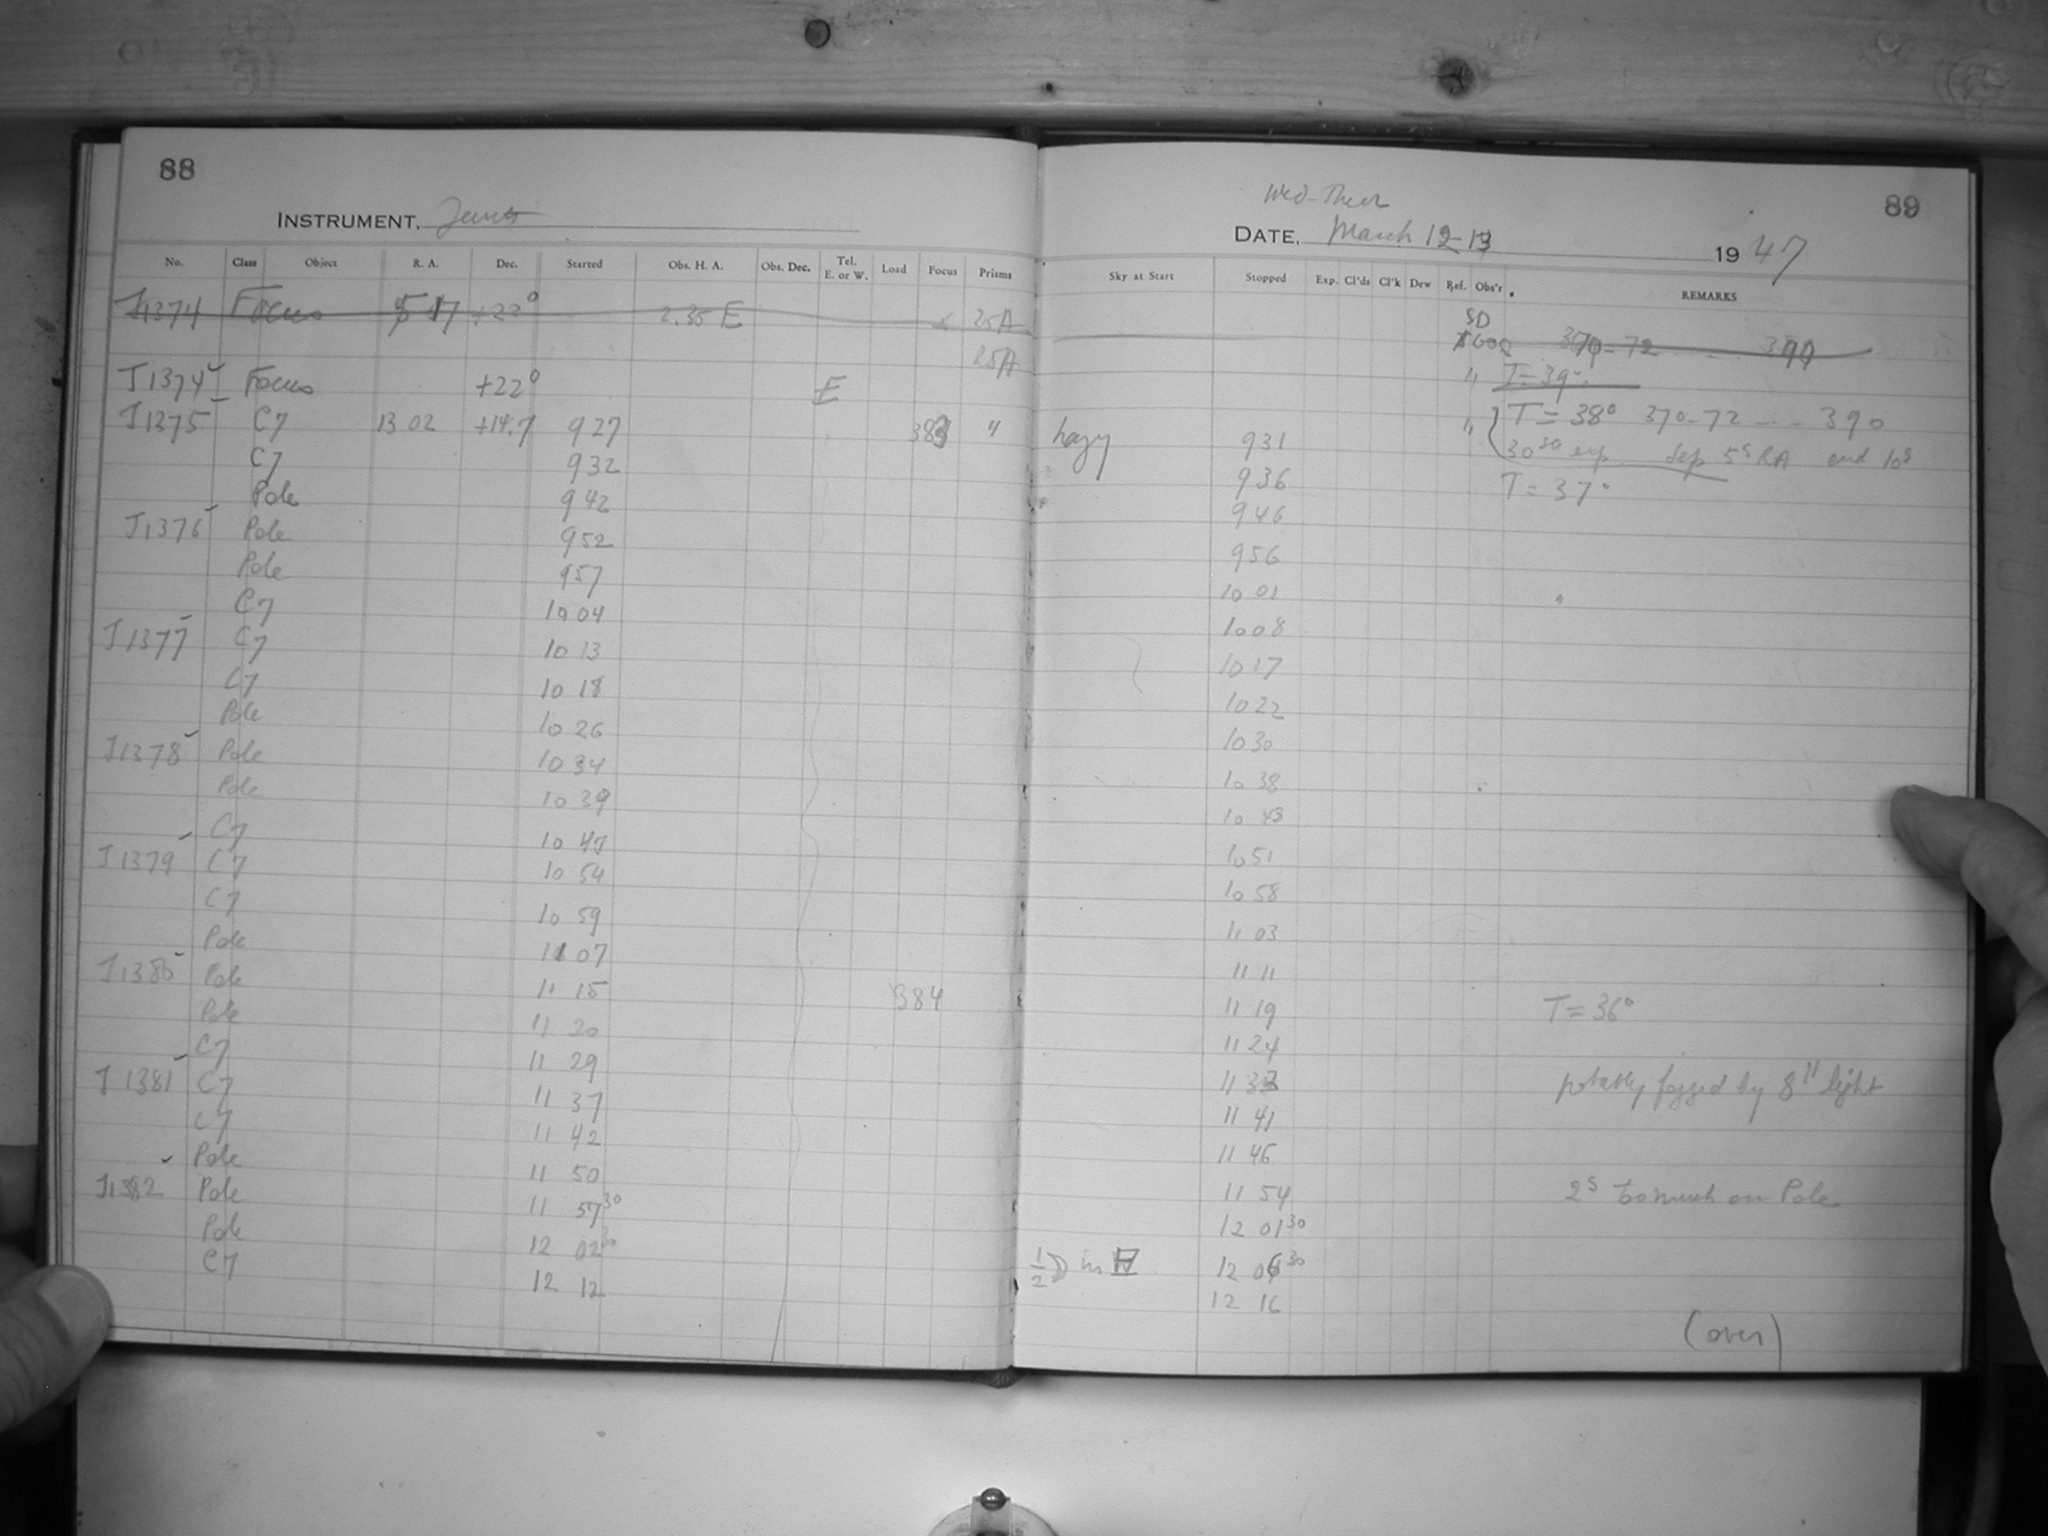 88
INSTRUMENT.
No. Class Object R. A. Dec. Started Obs. H. A. Obs. Dec. Tel. E. or W. Load Focus Prisms
J1374 Focus 5 17 +22° 2.35 E 25A
25A
J1374 Focus +22° E
J1375 C7 13 02 +14.7 927 383 "
C7 932
Pole 942
J1376 Pole 952
Pole 957
C7 10 04
J1377 C7 10 13
C7 10 18
Pole 10 26
J1378 Pole 10 34
Pole 10 39
C7 10 47
J1379 C7 10 54
C7 10 59
Pole 11 07
J1380 Pole 11 15 384
Pole 11 20
C7 11 29
J1381 C7 11 37
C7 11 42
Pole 11 50
J1382 Pole 11 57 30
Pole 12 02 30
C7 12 12
89
Wed-Thur
DATE. March 12-13 1947
Sky at Start Stopped Exp. Cl'ds Cl'k Dew Ref. Obs'r. REMARKS
SD
370-72 ... 390
" T=39°
hazy 931 " T=38° 370-72 ... 390
936 30 30 exp. sep 5s RA and 10s
946 T=37°
956
10 01
10 08
10 17
10 22
10 30
10 38
10 43
10 51
10 58
11 03
11 11
11 19 T=36°
11 24
11 33 fogged by 8" light
11 41
11 46
11 54 2s too much on Pole
12 01 30
1/2 in 12 06 30
12 16
(over)